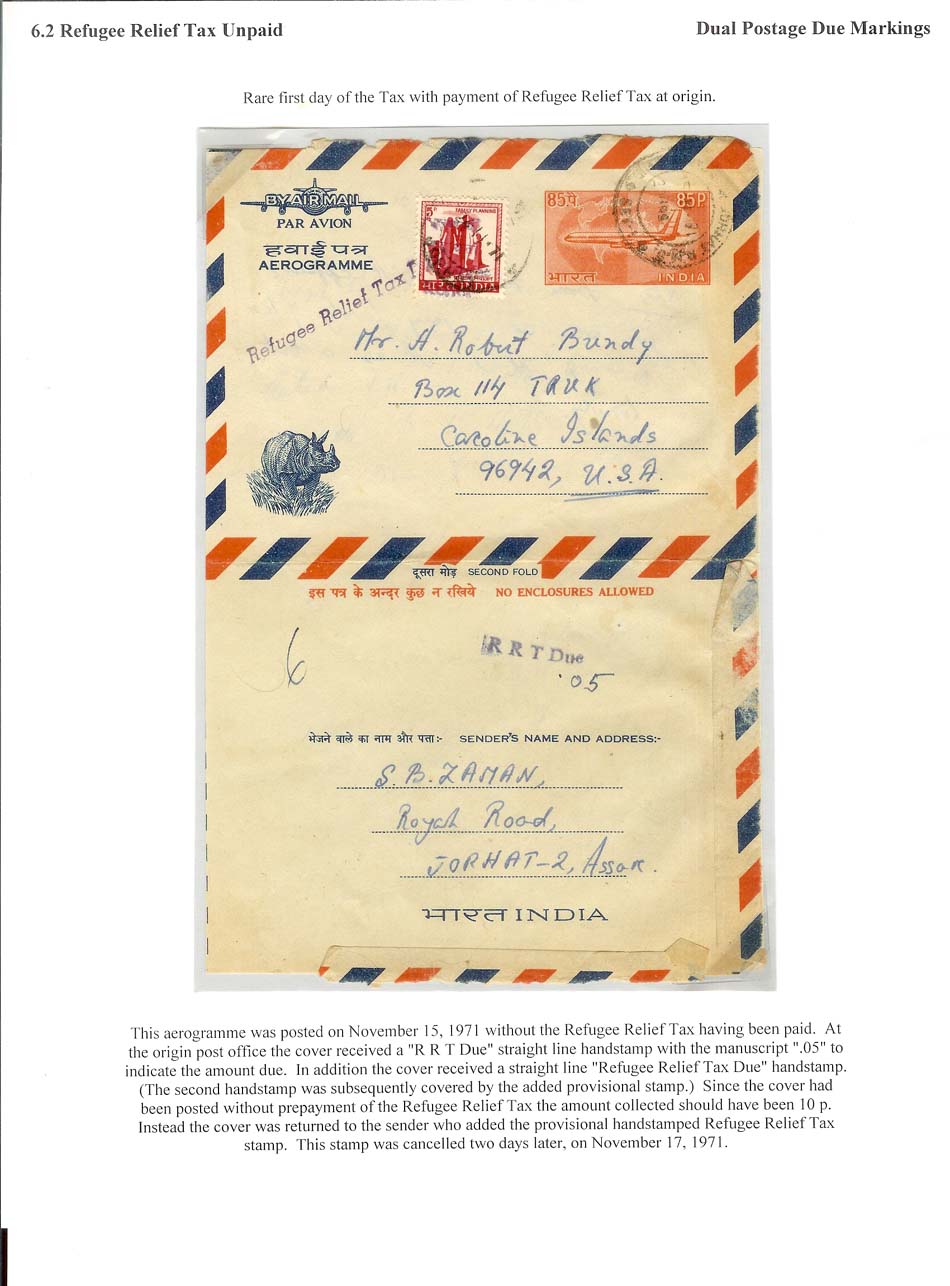 6.2 Refugee Relief Tax Unpaid
Dual Postage Due Markings
Rare first day of the Tax with payment of Refugee Relief Tax at origin.
BY AIR MAIL
PAR AVION
हवाई पत्र
AEROGRAMME
5
FAMILY PLANNING
भारत INDIA
85 पै.
85 P
भारत
INDIA
Refugee Relief Tax
Mr. H. Robert Bundy
Box 114 TRUK
Caroline Islands
96942, U.S.A.
दूसरा मोड़ SECOND FOLD
इस पत्र के अन्दर कुछ न रखिये NO ENCLOSURES ALLOWED
R R T Due
.05
6
भेजने वाले का नाम और पता:- SENDER'S NAME AND ADDRESS:-
S. B. ZAMAN,
Road,
JORHAT-2, Assam.
भारत INDIA
This aerogramme was posted on November 15, 1971 without the Refugee Relief Tax having been paid. At
the origin post office the cover received a "R R T Due" straight line handstamp with the manuscript ".05" to
indicate the amount due. In addition the cover received a straight line "Refugee Relief Tax Due" handstamp.
(The second handstamp was subsequently covered by the added provisional stamp.) Since the cover had
been posted without prepayment of the Refugee Relief Tax the amount collected should have been 10 p.
Instead the cover was returned to the sender who added the provisional handstamped Refugee Relief Tax
stamp. This stamp was cancelled two days later, on November 17, 1971.